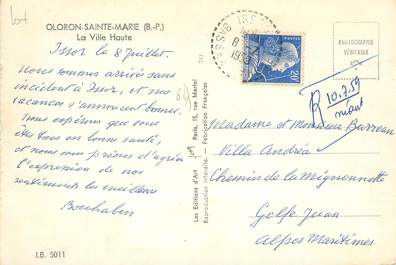 OLORON-SAINTE-MARIE (B.-P.)
La Ville Haute
Issor le 8 juillet.
Nous sommes arrivés sans
incident à Issor, et nos
vacances s'annoncent bonnes.
Nous espérons que vous
êtes tous en bonne santé,
et nous vous prions d'agréer
l'expression de nos
sentiments les meilleurs
I.B. 5011
Les Editions d'Art
Paris, 15, rue Martel
Reproduction interdite. - Fabrication Française
ISSOR
8-7
20F
PHOTOGRAPHIE
VÉRITABLE
R 10.7.59
néant
Madame et Monsieur Barreau
Villa Andréa
Chemin de la Mignonnette
Golfe Juan
Alpes Maritimes